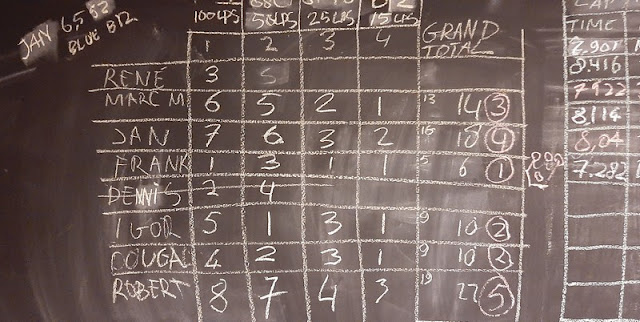 JAN 6,5 B2
BLUE B12
100 LPS 50 LPS 25 LPS 15 LPS
1 2 3 4 GRAND TOTAL
RENÉ 3 5
MARC M 6 5 2 1 13 14 3
JAN 7 6 3 2 16 18 4
FRANK 1 3 1 1 5 6 1
DENNIS 2 4
IGOR 5 1 3 1 9 10 2
COUGAL 4 2 3 1 9 10 2
ROBERT 8 7 4 3 19 22 5
LAP
TIME
8.416
7.922
8,114
8,04
7.282